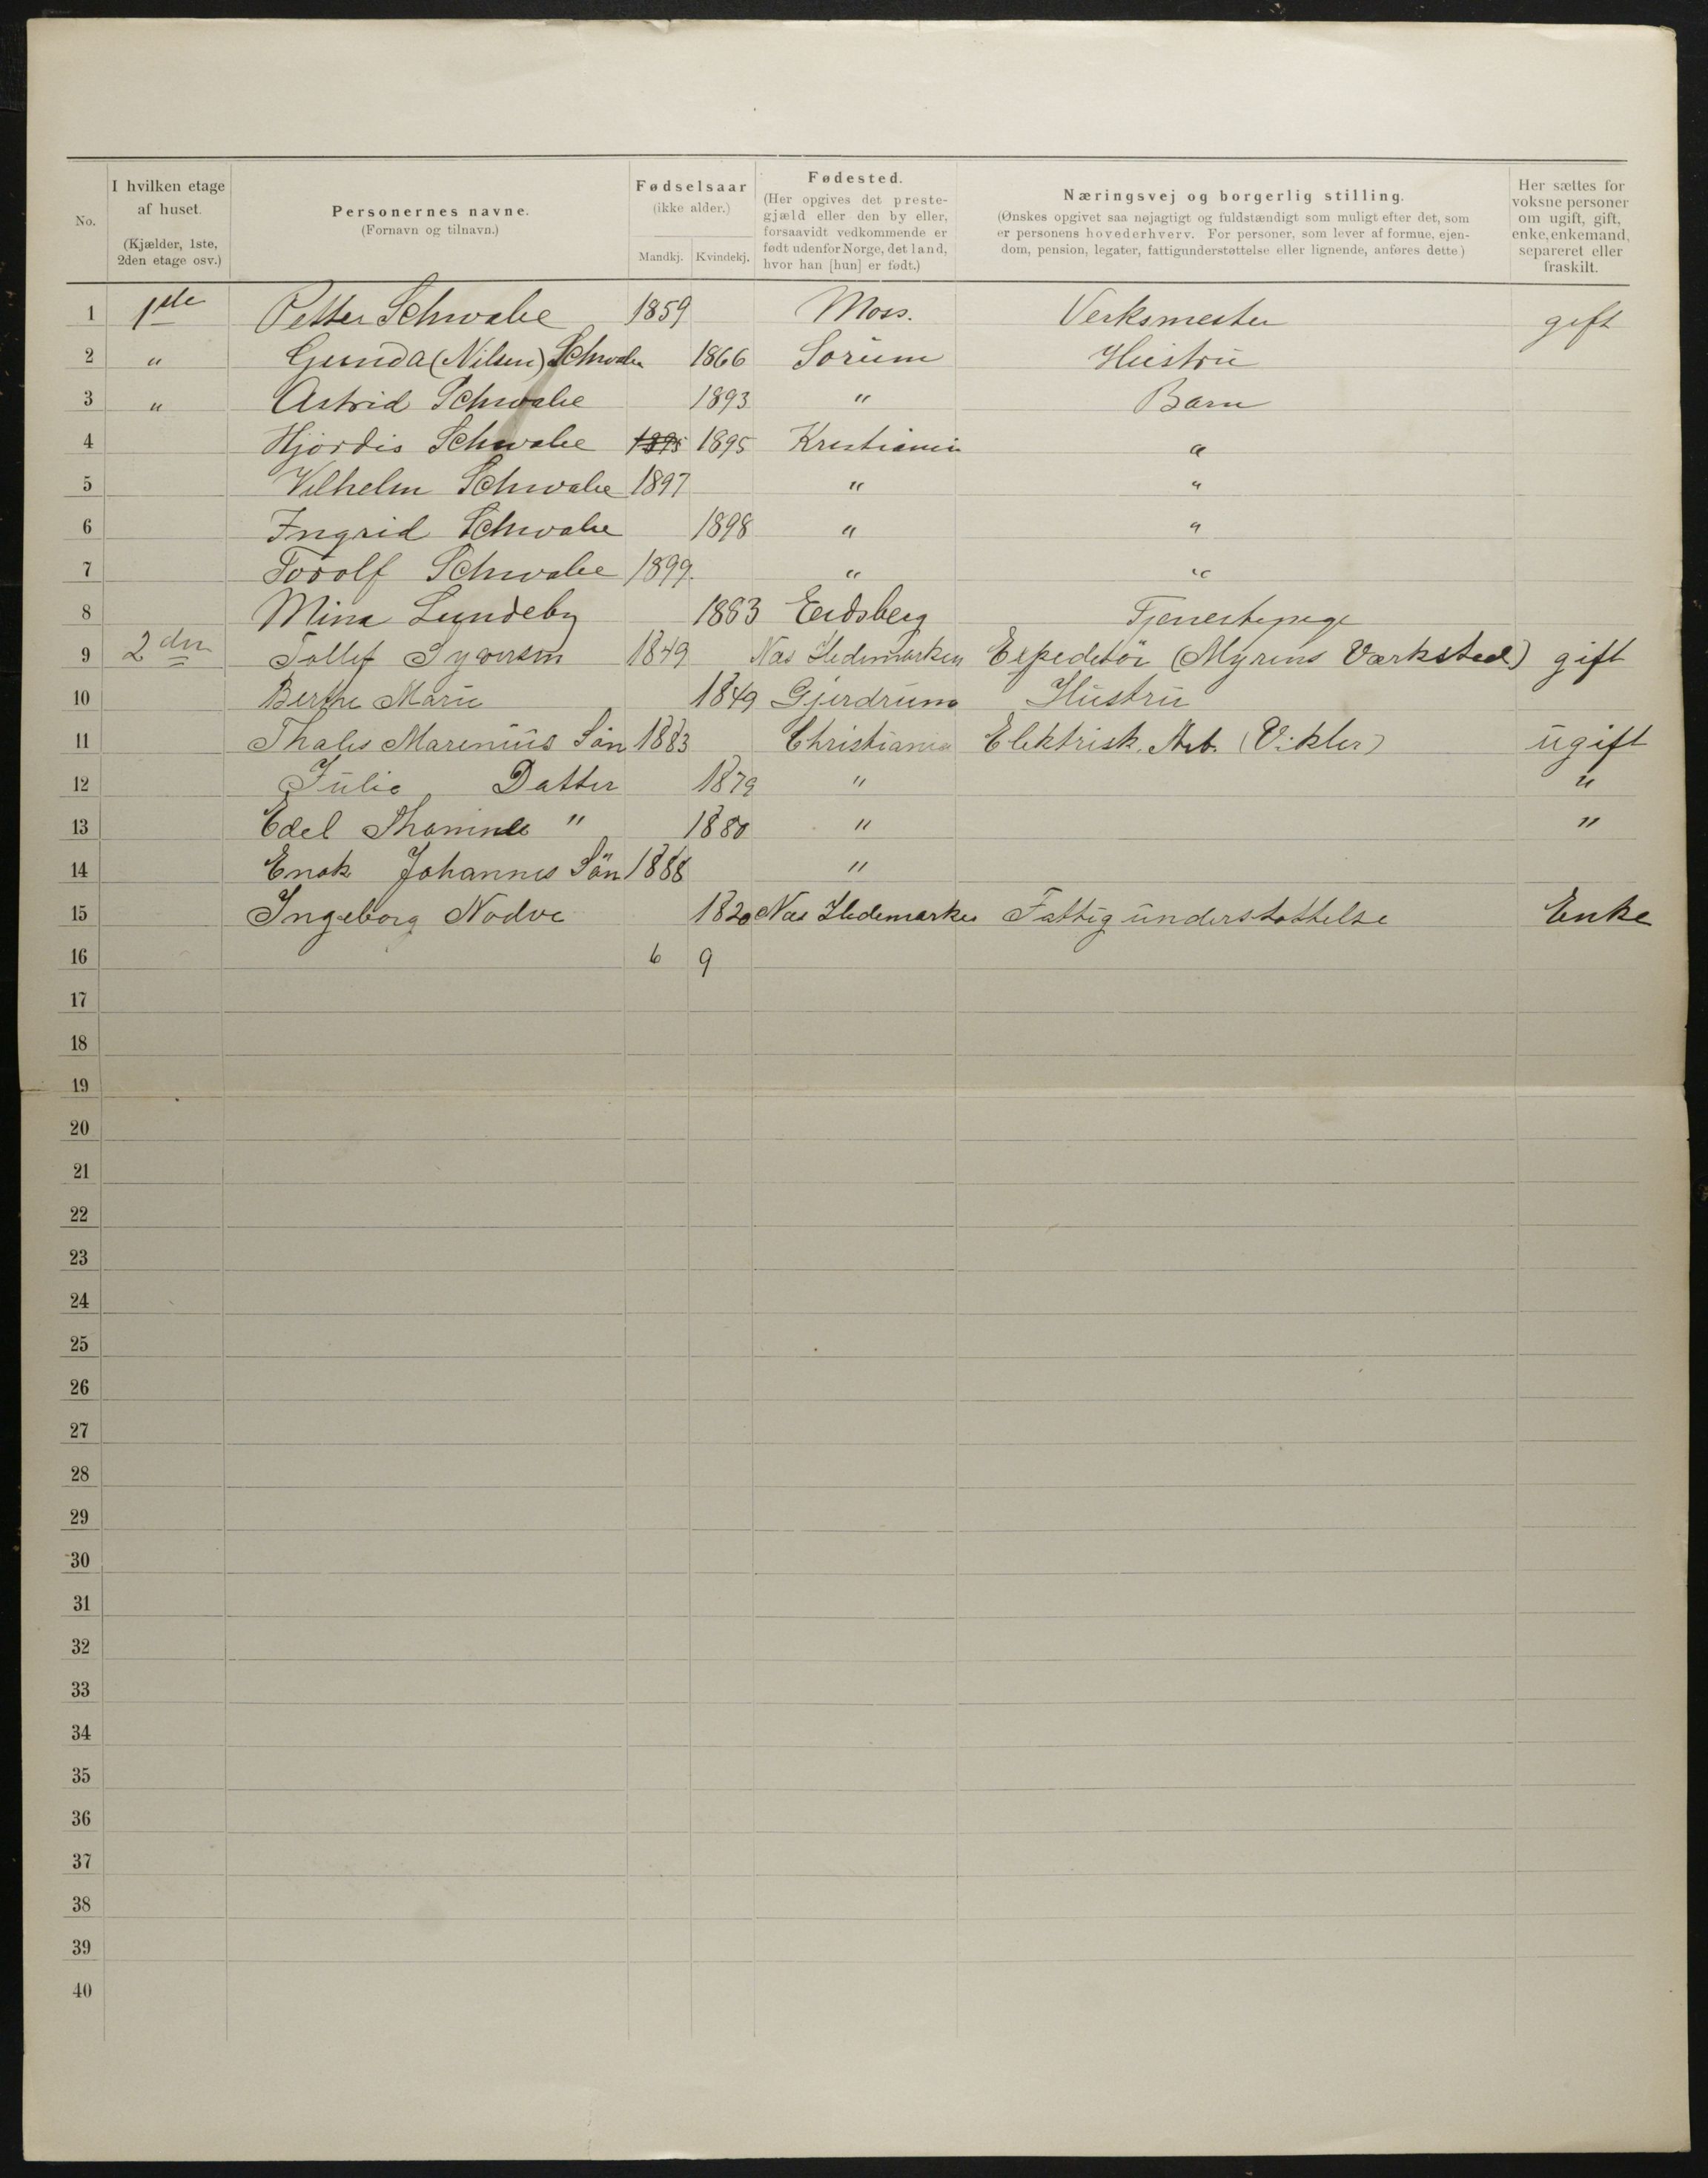 No. I hvilken etage af huset. (Kjælder, 1ste, 2den etage osv.) Personernes navne. (Fornavn og tilnavn.) Fødselsaar (ikke alder.) Mandkj. Kvindekj. Fødested. (Her opgives det prestegjæld eller den by eller, forsaavidt vedkommende er født udenfor Norge, det land, hvor han [hun] er født.) Næringsvej og borgerlig stilling. (Ønskes opgivet saa nøjagtigt og fuldstændigt som muligt efter det, som er personens hovederhverv. For personer, som lever af formue, ejendom, pension, legater, fattigunderstøttelse eller lignende, anføres dette) Her sættes for voksne personer om ugift, gift, enke, enkemand, separeret eller fraskilt.
1 1ste Petter Schwabe 1859 Moss. Verksmester gift
2 " Gunda (Nilsen) Schwabe 1866 Sorum Hustru
3 " Astrid Schwabe 1893 " Barn
4 Hjördis Schwabe 1895 1895 Kristiania "
5 Vilhelm Schwabe 1897 " "
6 Ingrid Schwabe 1898 " "
7 Torolf Schwabe 1899. " "
8 Mina Lundeby 1883 Eidsberg Tjenestepige
9 2den Tollef Syversen 1849 Nas Hedemarken Expeditör (Myrens Værksted) gift
10 Berthe Marie 1849 Gjerdrum Hustru
11 Thales Marenius Sön 1883 Christiania Elektrisk. Arb. (Vikler) ugift
12 Julie Datter 1879 " "
13 Edel " 1880 " "
14 Enok Johannes Sön 1888 "
15 Ingeborg Nodve 1820 Nas Hedemarken Fattigunderstøttelse Enke
16 6 9
17
18
19
20
21
22
23
24
25
26
27
28
29
30
31
32
33
34
35
36
37
38
39
40